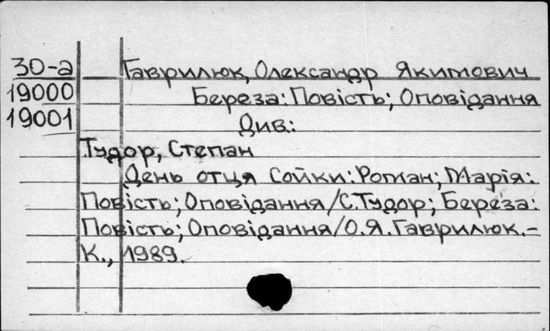 30-а Гаврилюк, Олександр Якимович
19000 Береза: Повість; Оповідання
19001 Див.:
Тудор, Степан
День отця Сойки: Роман; Марія:
Повість; Оповідання/С.Тудор; Береза:
Повість; Оповідання/О.Я.Гаврилюк.-
К., 1989.